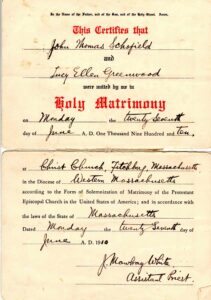 In the Name of the Father, and of the Son, and of the Holy Ghost. Amen.
This Certifies that
John Thomas Schofield
and
Lucy Ellen Greenwood
were united by me in
Holy Matrimony
on Monday the twenty seventh
day of June A. D. One Thousand Nine Hundred and ten,
at Christ Church, Fitchburg, Massachusetts
in the Diocese of Western Massachusetts
according to the Form of Solemnization of Matrimony of the Protestant
Episcopal Church in the United States of America; and in accordance
with the laws of the State of Massachusetts
Dated Monday the twenty seventh day of
June A. D. 1910
White
Assistant Priest.